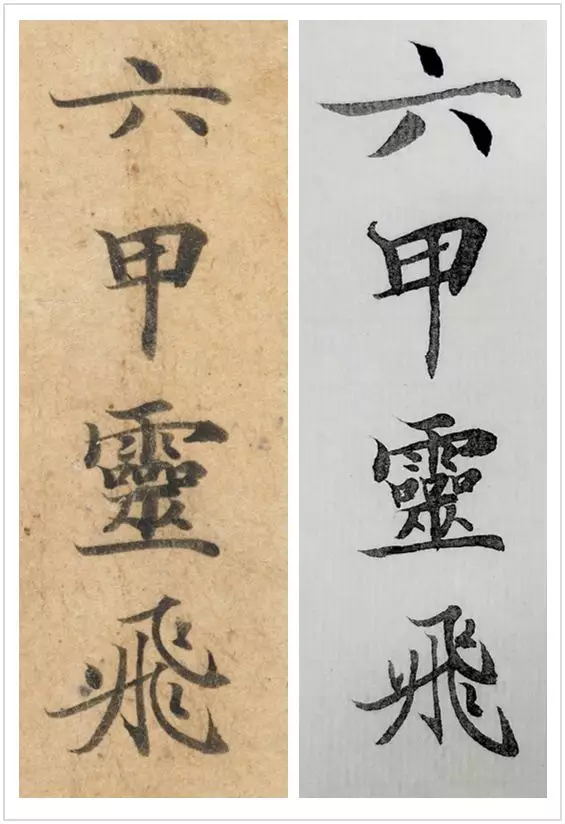 六甲靈飛
六甲靈飛